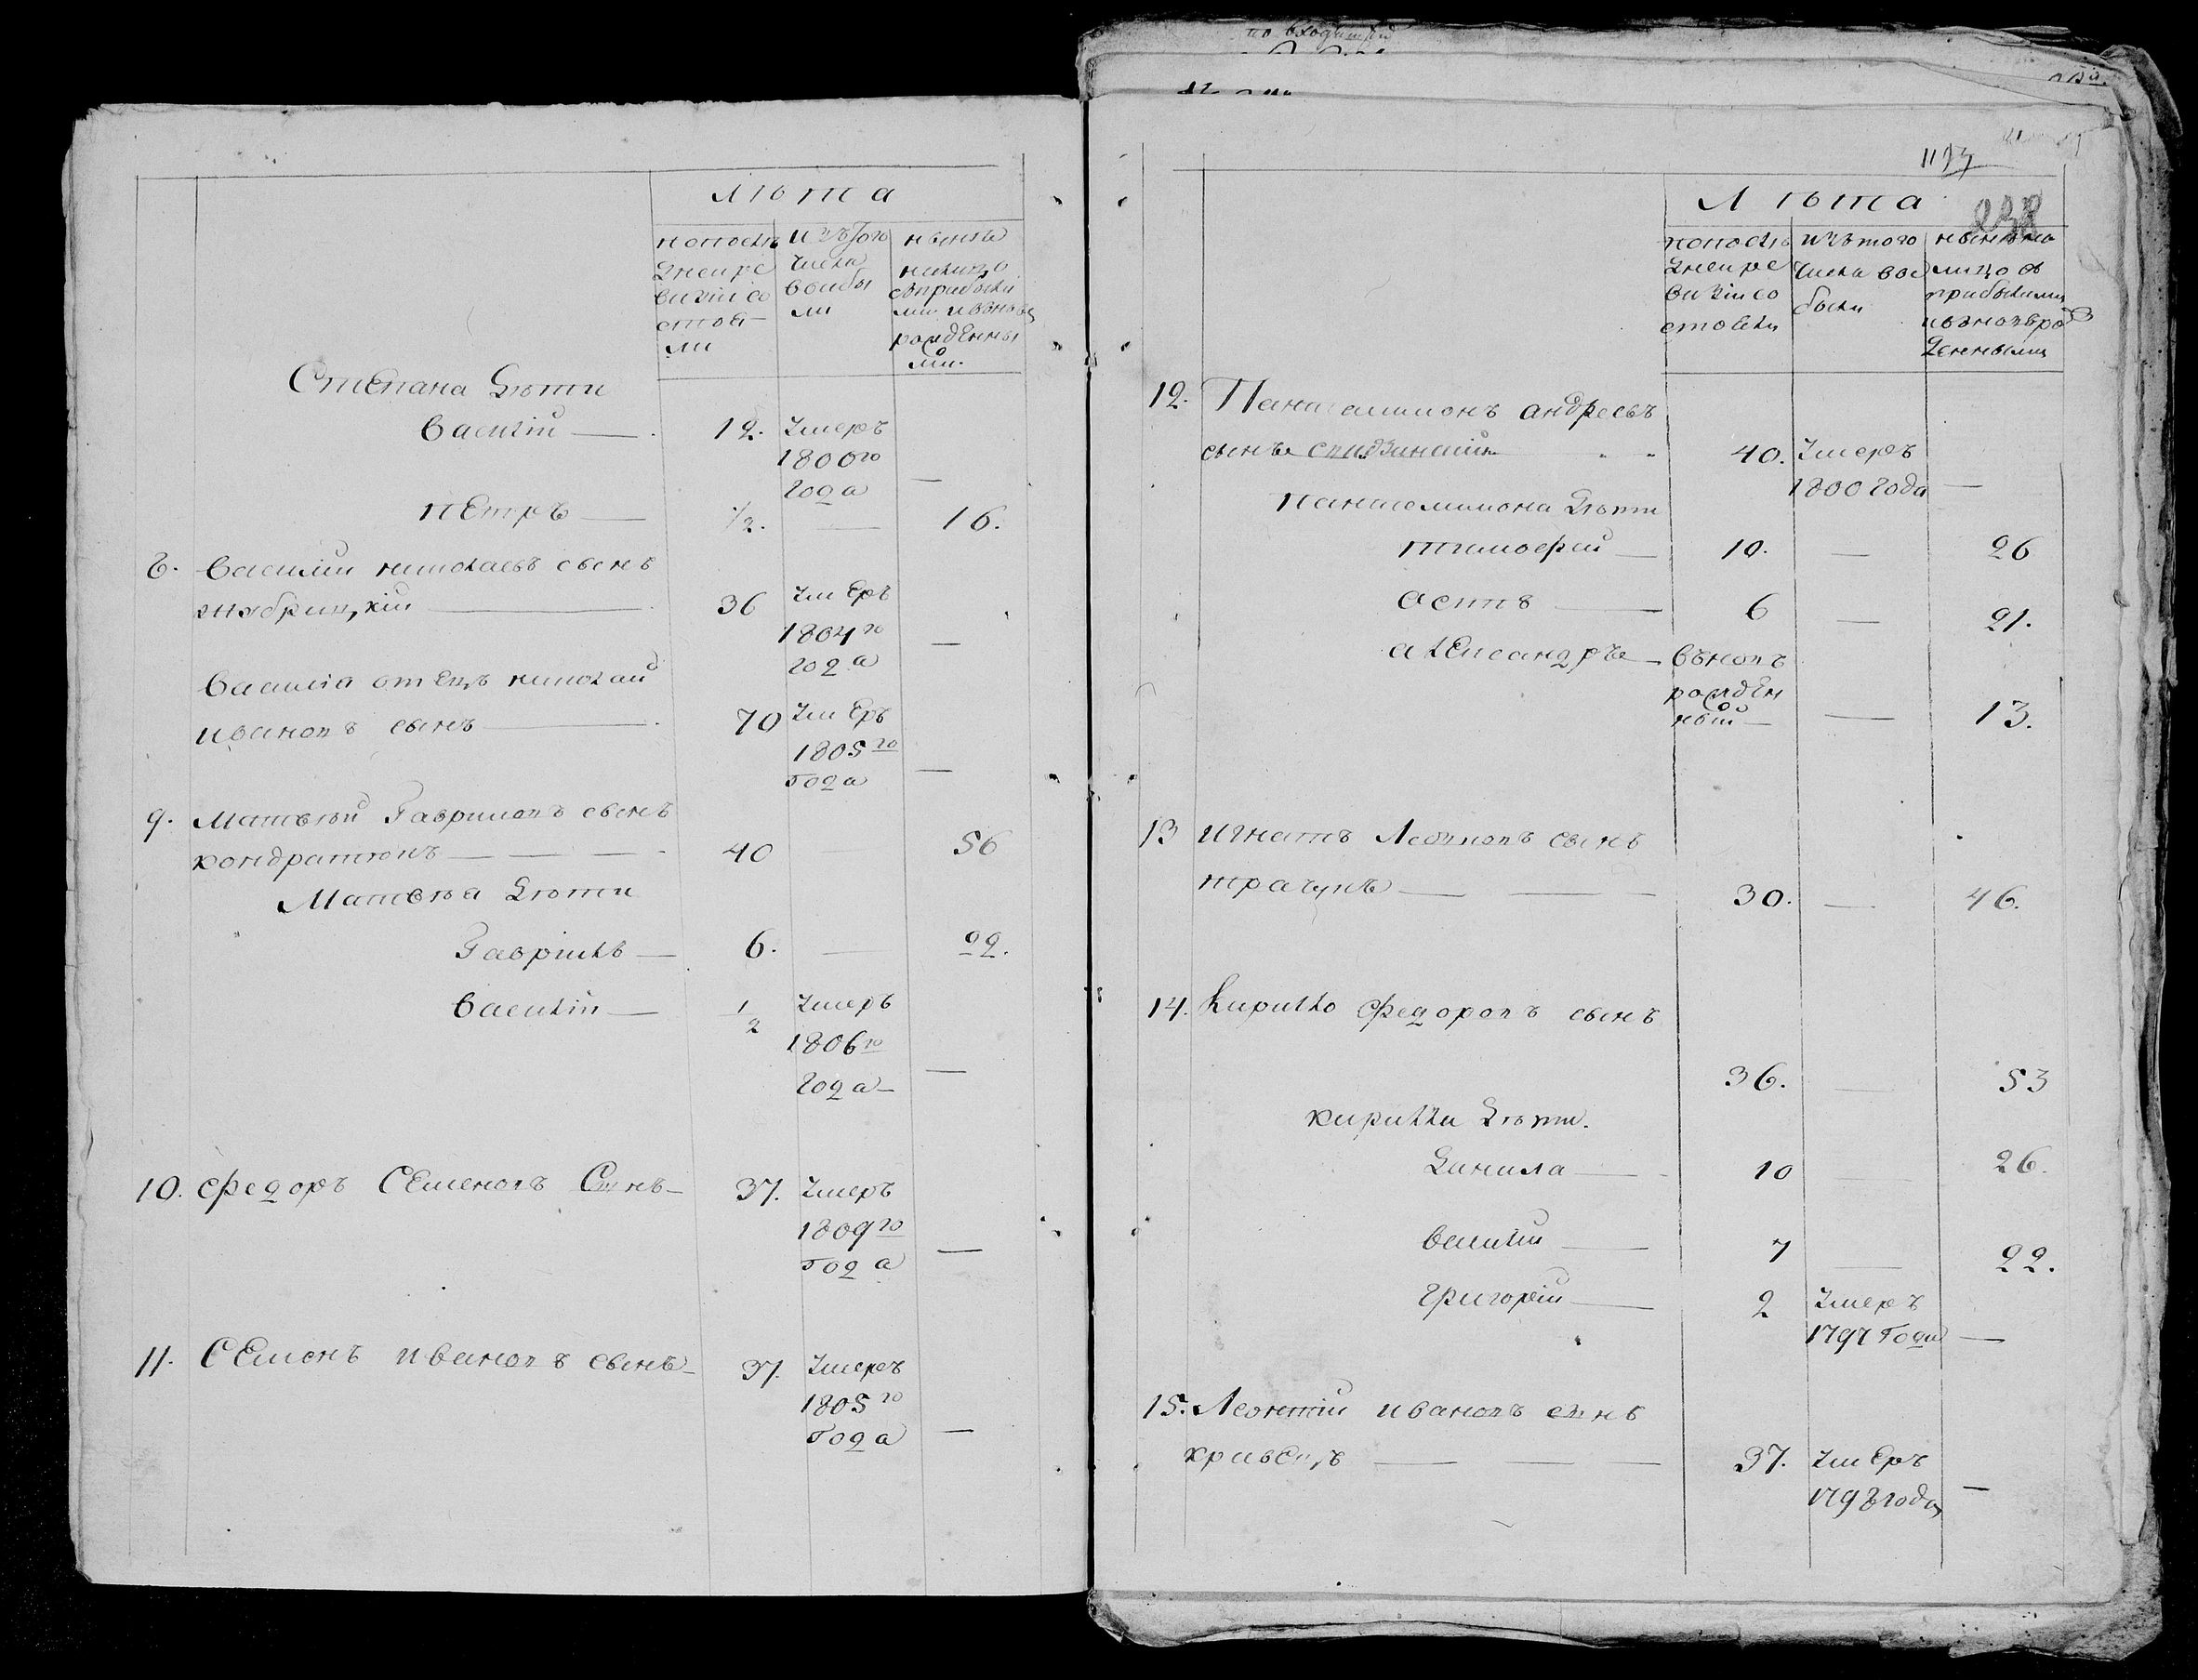 Лѣта
попослѣ
дней ре
визіи со
стоя
ли
изъ того
числа
выбы
ли
нынѣ
налицо
съприбылы
ми ивновь
рожденны
ми.
Степана дѣти
Василій — 12. умеръ
1800го
года —
Петръ — 1/2. — 16.
8. Василій николаевъ сынъ
36 умеръ
1804го
года —
Василія отецъ николай
ивановъ сынъ — 70 умеръ
1805го
года —
9. Матвѣй Гавриловъ сынъ
кондратюкъ — 40 — 56
Матвѣя дѣти
Гаврилъ — 6. — 22.
Василій — 1/2 умеръ
1806го
года —
10. Федоръ Семеновъ Сынъ — 37. умеръ
1809го
года —
11. Семенъ ивановъ сынъ — 37. умеръ
1805го
года —
Лѣта
попослѣ
дней ре
визіи со
стояли
изъ того
числа вы
были
нынѣ на
лицо съ
прибылыми
ивновь ро
денными
12. Пантелимонъ андреевъ
сынъ 40. умеръ
1800 года —
Пантелимона дѣти
тимофей — 10. — 26
осипъ — 6 — 21.
александръ — вновь
рожден
ный — — 13.
13 игнатъ сынъ
ткачукъ — 30. — 46.
14. Кирилко Федоровъ сынъ
36. — 53
кирилки дѣти.
данила — 10 — 26.
василій — 7 — 22.
григорій — 2 умеръ
1797 года —
15. Леонтій ивановъ сынъ
кравецъ — 37. умеръ
1798 года —